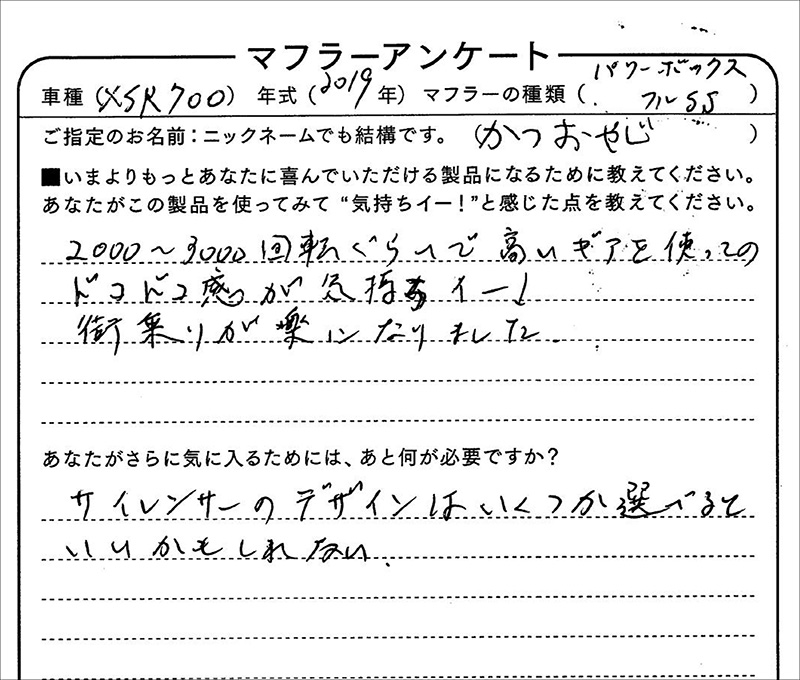 マフラーアンケート
車種（XSR700） 年式（2019年） マフラーの種類（パワーボックス フルSS）
ご指定のお名前：ニックネームでも結構です。（かつおやじ）
■いまよりもっとあなたに喜んでいただける製品になるために教えてください。
あなたがこの製品を使ってみて“気持ちイー！”と感じた点を教えてください。
2000～3000回転ぐらいで高いギアを使っての
ドコドコ感が気持ちイー！
街乗りが楽になりました.
あなたがさらに気に入るためには、あと何が必要ですか？
サイレンサーのデザインはいくつか選べると
いいかもしれない.